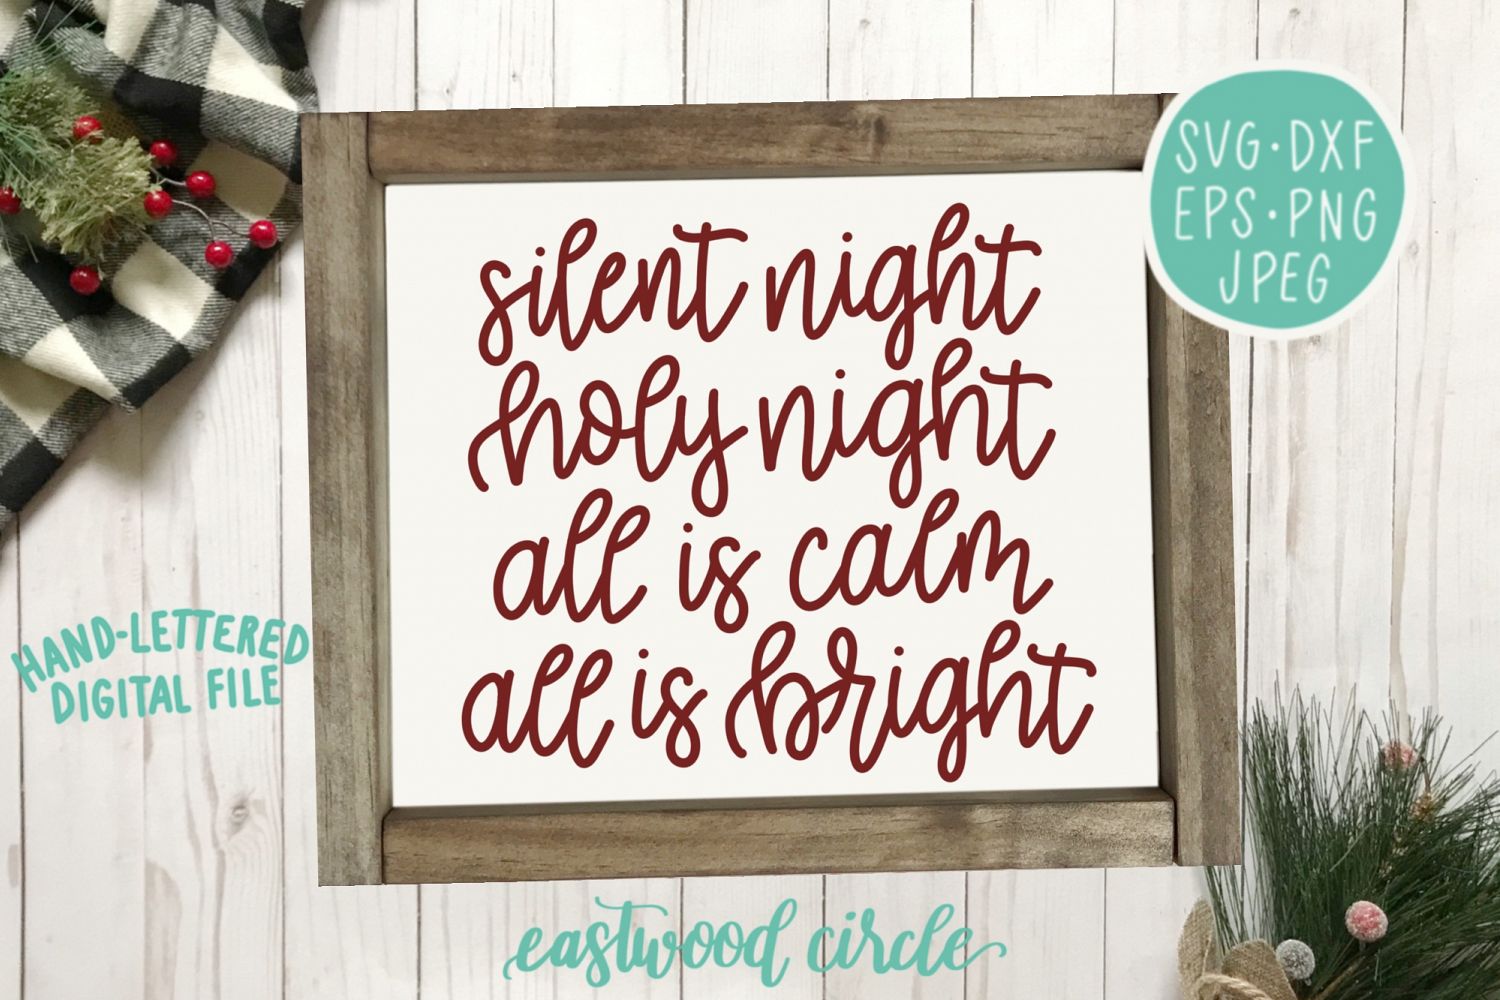 SVG·DXF
EPS·PNG
JPEG
silent night
holy night
all is calm
all is bright
HAND-LETTERED
DIGITAL FILE
eastwood circle